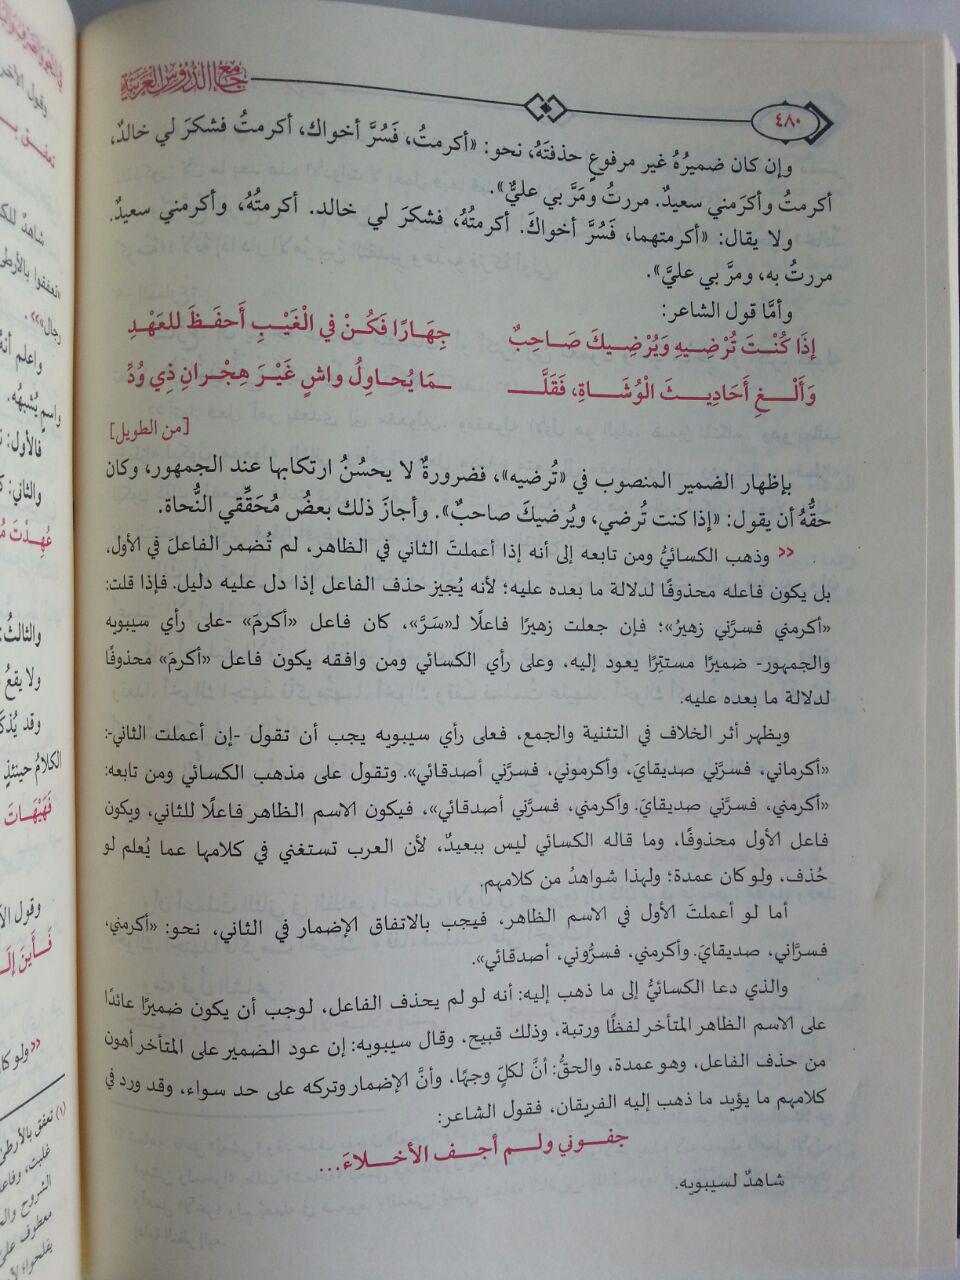 جامع الدروس العربية
٤٨٠
وإن كان ضميرُهُ غير مرفوعٍ حذفتَهُ، نحو: «أكرمتُ، فَسُرَّ أخواك، أكرمتُ فشكرَ لي خالدٌ،
أكرمتُ وأكرَمني سعيدٌ. مررتُ ومَرَّ بي عليٌّ».
ولا يقال: «أكرمتهما، فَسُرَّ أخواكَ. أكرمتُهُ، فشكرَ لي خالد. أكرمتُهُ، وأكرمني سعيدٌ.
مررتُ به، ومرَّ بي عليَّ».
وأمَّا قول الشاعر:
إذَا كُنْـتَ تُرْضِـيهِ وَيُرْضِـيكَ صَـاحِبٌ جِهَـارًا فَكُـنْ في الْغَيْـبِ أَحفَـظَ للعَهْـدِ
وَأَلْـغِ أَحَادِيـثَ الْوُشَـاةِ، فَقَلَّـ ـمَا يُحـاوِلُ واشٍ غَيْـرَ هِجْـرانِ ذِي وُدِّ
[من الطويل]
بإظهار الضمير المنصوب في «تُرضيه»، فضرورةٌ لا يحسُنُ ارتكابها عند الجمهور، وكان
حقُّهُ أن يقول: «إذا كنت تُرضي، ويُرضيكَ صاحبٌ». وأجازَ ذلك بعضُ مُحَقِّقي النُّحاة.
<< وذهب الكسائيُّ ومن تابعه إلى أنه إذا أعملتَ الثاني في الظاهر، لم تُضمر الفاعلَ في الأول،
بل يكون فاعله محذوفًا لدلالة ما بعده عليه؛ لأنه يُجيز حذف الفاعل إذا دل عليه دليل. فإذا قلت:
«أكرمني فسرَّني زهيرُ»؛ فإن جعلت زهيرًا فاعلًا لـ«سَرَّ»، كان فاعل «أكرمَ» -على رأي سيبويه
والجمهور- ضميرًا مستترًا يعود إليه، وعلى رأي الكسائي ومن وافقه يكون فاعل «أكرمَ» محذوفًا
لدلالة ما بعده عليه.
ويظهر أثر الخلاف في التثنية والجمع، فعلى رأي سيبويه يجب أن تقول -إن أعملت الثاني-:
«أكرماني، فسرَّني صديقايَ، وأكرموني، فسرَّني أصدقائي». وتقول على مذهب الكسائي ومن تابعه:
«أكرمني، فسرَّني صديقايَ. وأكرمني، فسرَّني أصدقائي»، فيكون الاسم الظاهر فاعلًا للثاني، ويكون
فاعل الأول محذوفًا، وما قاله الكسائي ليس ببعيدٌ، لأن العرب تستغني في كلامها عما يُعلم لو
حُذف، ولو كان عمدة؛ ولهذا شواهدُ من كلامهم.
أما لو أعملتَ الأول في الاسم الظاهر، فيجب بالاتفاق الإضمار في الثاني، نحو: «أكرمني،
فسرَّاني، صديقايَ. وأكرمني، فسرُّوني، أصدقائي».
والذي دعا الكسائيُّ إلى ما ذهب إليه: أنه لو لم يحذف الفاعل، لوجب أن يكون ضميرًا عائدًا
على الاسم الظاهر المتأخر لفظًا ورتبة، وذلك قبيح، وقال سيبويه: إن عود الضمير على المتأخر أهون
من حذف الفاعل، وهو عمدة، والحقُّ: أنَّ لكلٍّ وجهًا، وأنَّ الإضمار وتركه على حد سواء، وقد ورد في
كلامهم ما يؤيد ما ذهب إليه الفريقان، فقول الشاعر:
جفـوني ولـم أجـف الأخـلاءَ...
شاهدٌ لسيبويه.